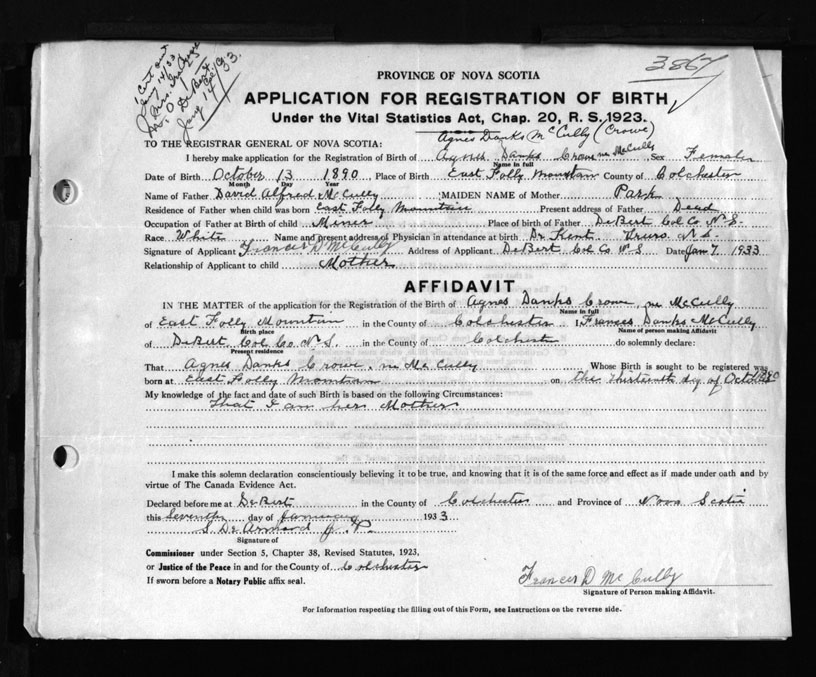 Cert sent
Jany 14/33
Mrs.
De Bert
Col Co
Jany 14/33
3867
PROVINCE OF NOVA SCOTIA
APPLICATION FOR REGISTRATION OF BIRTH
Under the Vital Statistics Act, Chap. 20, R. S. 1923.
Agnes Danks McCully (Crowe)
TO THE REGISTRAR GENERAL OF NOVA SCOTIA:
I hereby make application for the Registration of Birth of Agness Danks Crowe ne McCully Sex Female
Name in full
Date of Birth October 13 1890 Place of Birth East Folly Mountain County of Colchester
Month Day Year
Name of Father David Alfred McCully MAIDEN NAME of Mother Park
Residence of Father when child was born East Folly Mountain Present address of Father Dead
Occupation of Father at Birth of child Miner Place of birth of Father DeBert Col Co N.S.
Race White Name and present address of Physician in attendance at birth Dr Kent Truro N.S.
Signature of Applicant Frances D McCully Address of Applicant DeBert Col Co N S Date Jan 7 1933
Relationship of Applicant to child Mother
AFFIDAVIT
IN THE MATTER of the application for the Registration of the Birth of Agnes Danks Crowe, ne McCully
Name in full
of East Folly Mountain in the County of Colchester I, Frances Danks McCully
Birth place Name of person making Affidavit
of DeBert Col. Co. N.S. in the County of Colchester do solemnly declare:
Present residence
That Agnes Danks Crowe, ne McCully Whose Birth is sought to be registered was
born at East Folly Mountain on the thirteenth day of October 1890
My knowledge of the fact and date of such Birth is based on the following Circumstances:
That I am her Mother
I make this solemn declaration conscientiously believing it to be true, and knowing that it is of the same force and effect as if made under oath and by
virtue of The Canada Evidence Act.
Declared before me at DeBert in the County of Colchester and Province of Nova Scotia
this seventh day of January 1933
S De Armond J. P.
Signature of
Commissioner under Section 5, Chapter 38, Revised Statutes, 1923,
or Justice of the Peace in and for the County of Colchester
If sworn before a Notary Public affix seal.
Frances D McCully
Signature of Person making Affidavit.
For Information respecting the filling out of this Form, see Instructions on the reverse side.